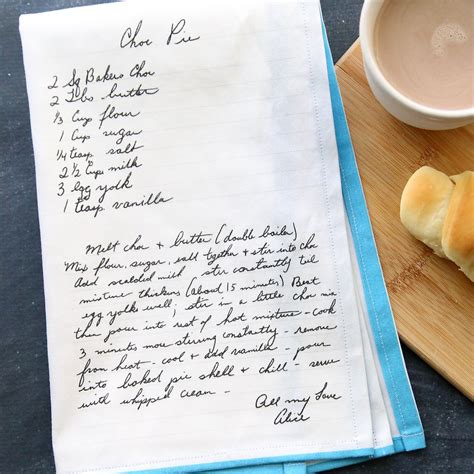 Choc Pie
2 Sq Bakers Choc
2 Tbs butter
1/3 Cup flour
1 Cup sugar
1/4 teasp salt
2 1/2 Cups milk
3 Egg yolk
1 Teasp vanilla
Melt choc + butter (double boiler)
Mix flour, sugar, salt together + stir into choc
Add scalded milk stir constantly til
mixture thickens (about 15 minutes) Beat
egg yolks well; stir in a little choc mix
then pour into rest of hot mixture - cook
3 minutes more stirring constantly - remove
from heat - cool + add vanilla - pour
into baked pie shell + chill - serve
with whipped cream -
All my Love
Alice